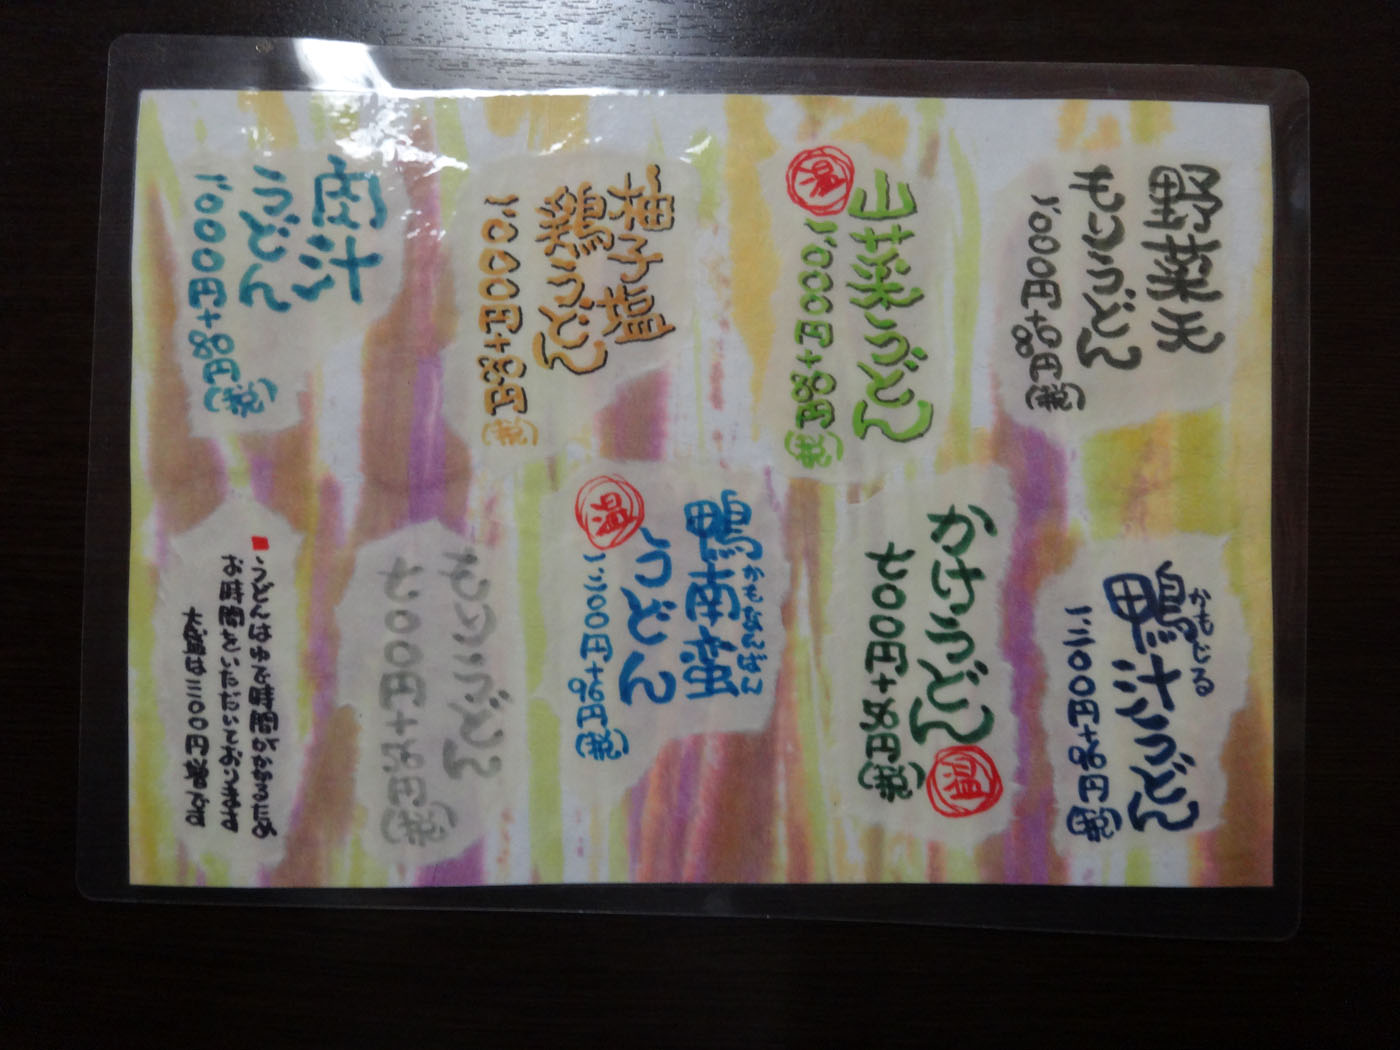 野菜天
もりうどん
一、000円+80円(税)
かもじる
鴨汁うどん
一、二00円+96円(税)
山菜うどん
温
一、000円+80円(税)
かけうどん
温
七00円+56円(税)
鶏うどん
一、000円+80円(税)
かもなんばん
鴨南蛮
うどん
温
一、二00円+96円(税)
もりうどん
七00円+56円(税)
肉汁
うどん
一、000円+80円(税)
■うどんはゆで時間がかかる為
お時間をいただいております
大盛は 円増です